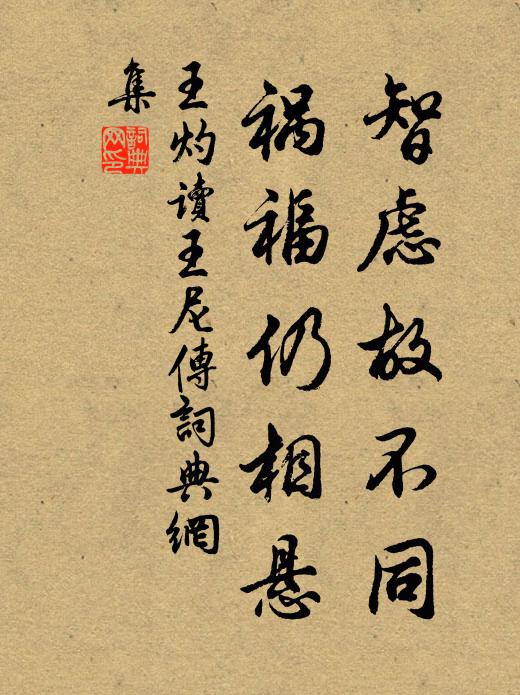 智慮故不同
禍福仍相悬
王灼讀王尼傳詞典網
集
詞典
网印